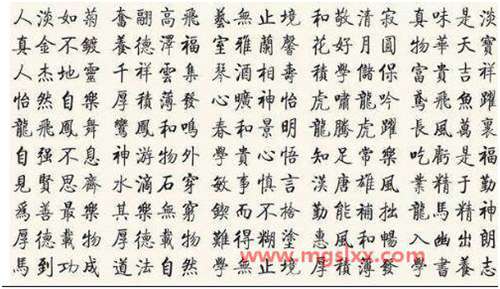 人淡如菊 奮翮高飛 藝無止境 和敬清寂 真味是淡
真金不鍍 養德澤福 室雅蘭馨 花好月圓 物華天寶
人杰地靈 千祥雲集 琴酒相壽 積學儲保 富貴吉祥
怡然自樂 厚積薄發 心曠神怡 虎嘯龍吟 鳶飛魚躍
龍飛鳳舞 鸞鳳和鳴 春和景明 龍騰虎躍 長風萬裏
自强不息 神游物外 學貴心悟 知足常樂 吃虧是福
見賢思齊 水滴石穿 敏事慎言 漢唐雄風 業精于勤
爲善最樂 其樂無窮 鍥而不捨 勤能補拙 龍馬精神
厚德載物 難得糊塗 惠風和暢 入幽出朗
馬到功成 道法自然 學無止境 厚積薄發 學書養志
www.mgslxx.com